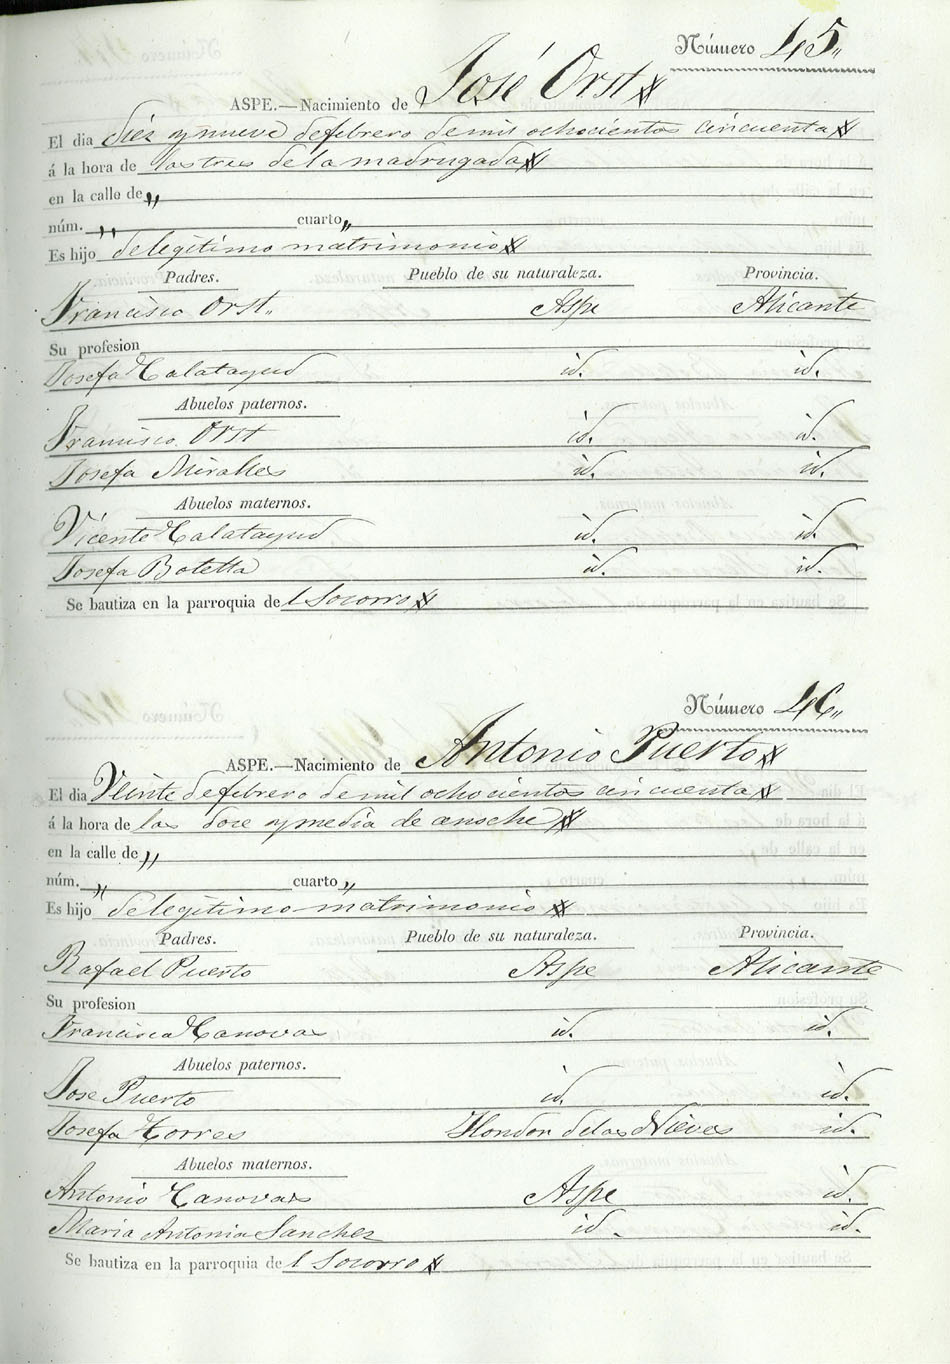 Número 45,,
ASPE.—Nacimiento de José Orst
El dia diez y nueve de febrero de mil ochocientos cincuenta
á la hora de las tres de la madrugada
en la calle de ,,
núm. ,, cuarto ,,
Es hijo de legitimo matrimonio
Padres. Pueblo de su naturaleza. Provincia.
Francisco Orst. Aspe Alicante
Su profesion
Josefa Calatayud id. id.
Abuelos paternos.
Francisco Orst id. id.
Josefa Miralles id. id.
Abuelos maternos.
Vicente Calatayud id. id.
Josefa Botella id. id.
Se bautiza en la parroquia del Socorro
Número 46,,
ASPE.—Nacimiento de Antonio Puerto
El dia Veinte de febrero de mil ochocientos cincuenta
á la hora de las doce y media de anoche
en la calle de ,,
núm. ,, cuarto ,,
Es hijo de legitimo matrimonio
Padres. Pueblo de su naturaleza. Provincia.
Rafael Puerto Aspe Alicante
Su profesion
Francisca Canovas id. id.
Abuelos paternos.
Jose Puerto id. id.
Josefa Torres Hondon de las Nieves id.
Abuelos maternos.
Antonio Canovas Aspe id.
Maria Antonia Sanchez id. id.
Se bautiza en la parroquia del Socorro